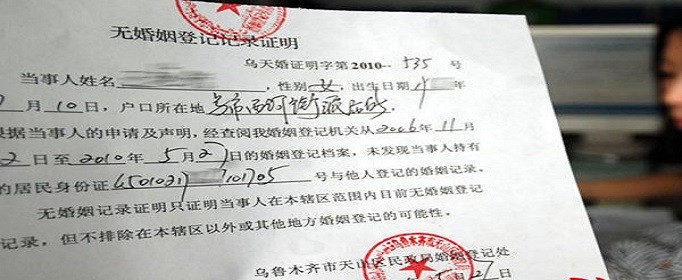 无婚姻登记记录证明
乌天婚证明字第2010--535号
当事人姓名 ，性别女，出生日期 年
月10日，户口所在地
根据当事人的申请及声明，经查阅我婚姻登记机关从2006年11月
2日至2010年5月27日的婚姻登记档案，未发现当事人持有
的居民身份证 号与他人登记的婚姻记录。
无婚姻记录证明只证明当事人在本辖区范围内目前无婚姻登记
记录，但不排除在本辖区以外或其他地方婚姻登记的可能性。
乌鲁木齐市天山区民政局婚姻登记处